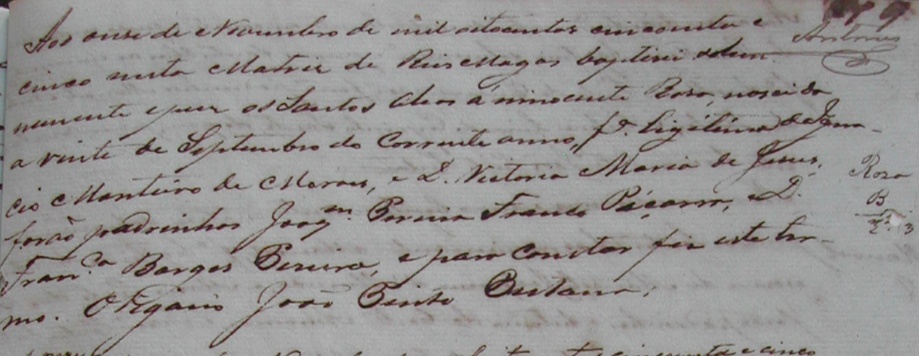 Aos onze de Novembro de mil oitocentos cincoenta e
cinco nesta Matriz de Reis Magos baptizei solem
nemente e puz os Santos Oleos á innocente Roza, nascida
a vinte de Septembro do Corrente anno, fª. Ligitima de Igna-
cio Monteiro de Moraes, e D. Victoria Maria de Jesus,
forão padrinhos Joaqm Pereira Franco, e D.
Franca Borges Pereira, e para constar fiz este ter-
mo. O Vigario João Pinto
Antonio
Roza
B